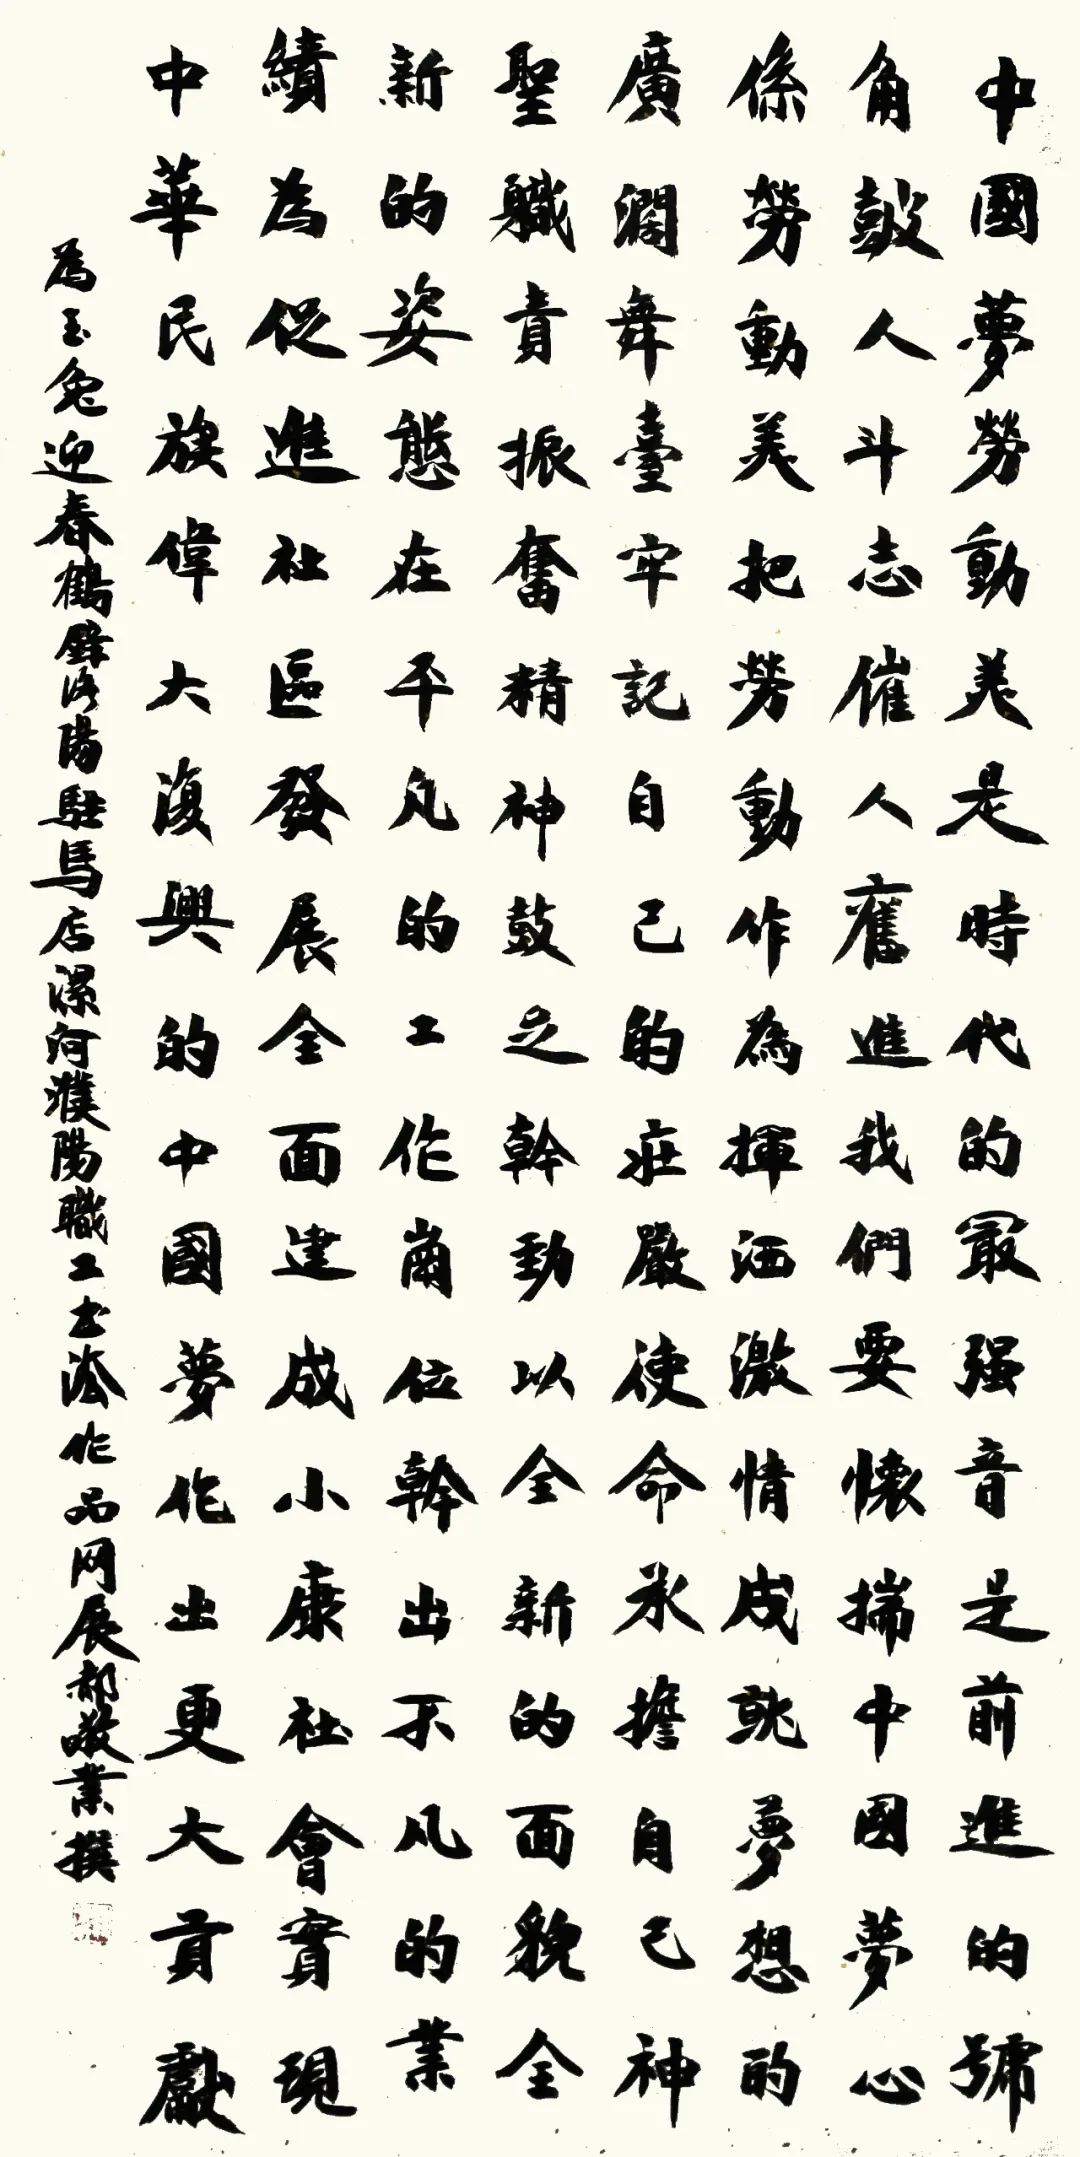 中國夢勞動美是時代的最强音是前進的號
角鼓人斗志催人奮進我們要懷揣中國夢心
係勞動美把勞動作為揮洒激情成就夢想的
廣濶舞臺牢記自己的莊嚴使命承擔自己神
聖職責振奮精神鼓足幹勁以全新的面貌全
新的姿態在平凡的工作崗位幹出不凡的業
績為促進社區發展全面建成小康社會實現
中華民族偉大復興的中國夢作出更大貢獻
為玉兔迎春鶴壁洛陽駐馬店漯河濮陽職工书法作品网展郝敬業撰